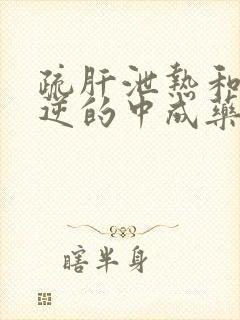 疏肝泄热和
逆的中成药
瞎半身